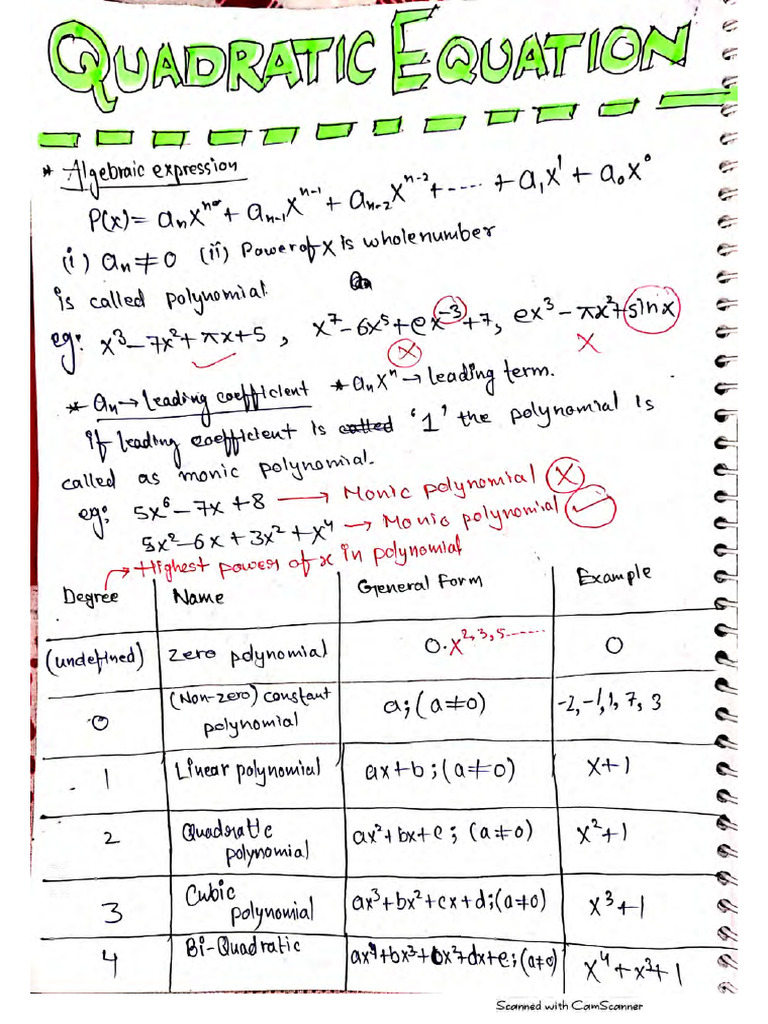 QUADRATIC EQUATION
* Algebraic expression
P(x) = aₙxⁿ + aₙ₋₁xⁿ⁻¹ + aₙ₋₂xⁿ⁻² + ..... + a₁x¹ + a₀x⁰
(i) aₙ ≠ 0 (ii) Power of x is whole number
is called polynomial.
eg: x³ – 7x² + πx + 5 ✓, x⁷ – 6x⁵ + ex⁻³ + 7 ✗, ex³ – πx² + sin x ✗
* aₙ → Leading coefficient * aₙxⁿ → leading term.
if leading coefficient is called '1' the polynomial is
called as monic polynomial.
eg: 5x⁶ – 7x + 8 → Monic polynomial ✗
5x² – 6x + 3x² + x⁴ → Monic polynomial ✓
→ Highest power of x in polynomial
Degree Name General Form Example
(undefined) Zero polynomial 0·x²,³,⁵...... 0
0 (Non-zero) constant polynomial a; (a≠0) -2, -1, 1, 7, 3
1 Linear polynomial ax+b; (a≠0) x+1
2 Quadratic polynomial ax²+bx+c; (a≠0) x²+1
3 Cubic polynomial ax³+bx²+cx+d; (a≠0) x³+1
4 Bi-Quadratic ax⁴+bx³+cx²+dx+e; (a≠0) x⁴+x³+1
Scanned with CamScanner